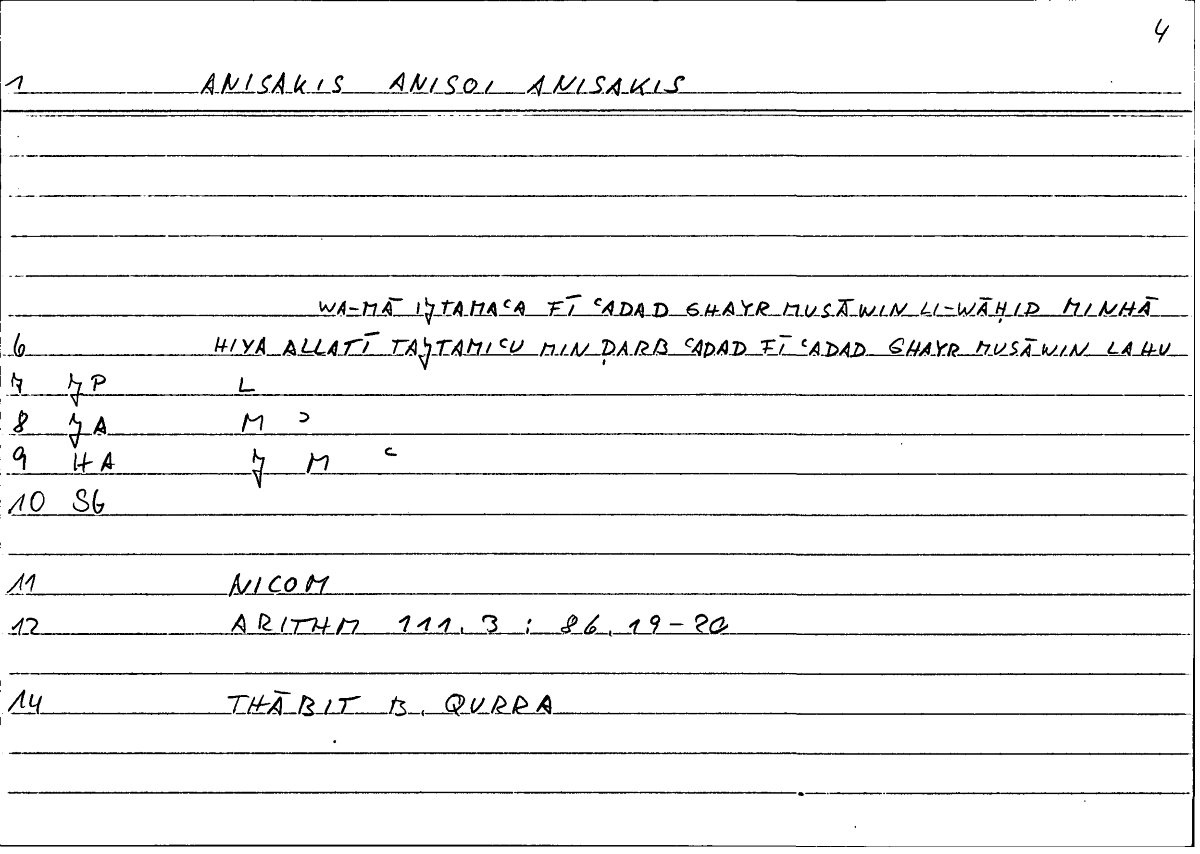 4
1 ANISAKIS ANISOI ANISAKIS
WA-MĀ IǦTAMAʿA FĪ ʿADAD GHAYR MUSĀWIN LI-WĀḤID MINHĀ
6 HIYA ALLATĪ TAǦTAMIʿU MIN ḌARB ʿADAD FĪ ʿADAD GHAYR MUSĀWIN LAHU
7 ǦP L
8 ǦA M ʾ
9 HA Ǧ M ʿ
10 SG
11 NICOM
12 ARITHM 111.3 : 86.19-20
14 THĀBIT B. QURRA